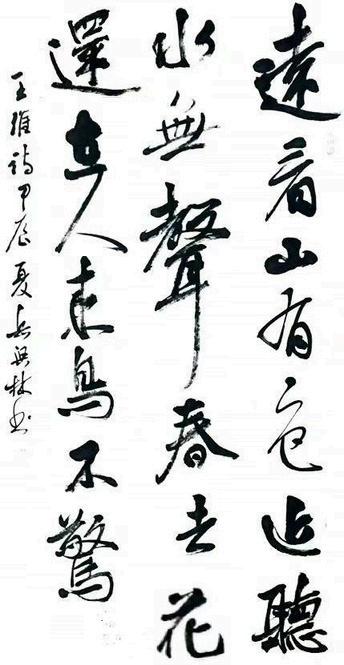 遠看山有色近聽
水無聲春去花
還在人来鳥不驚
王維詩甲辰夏林书